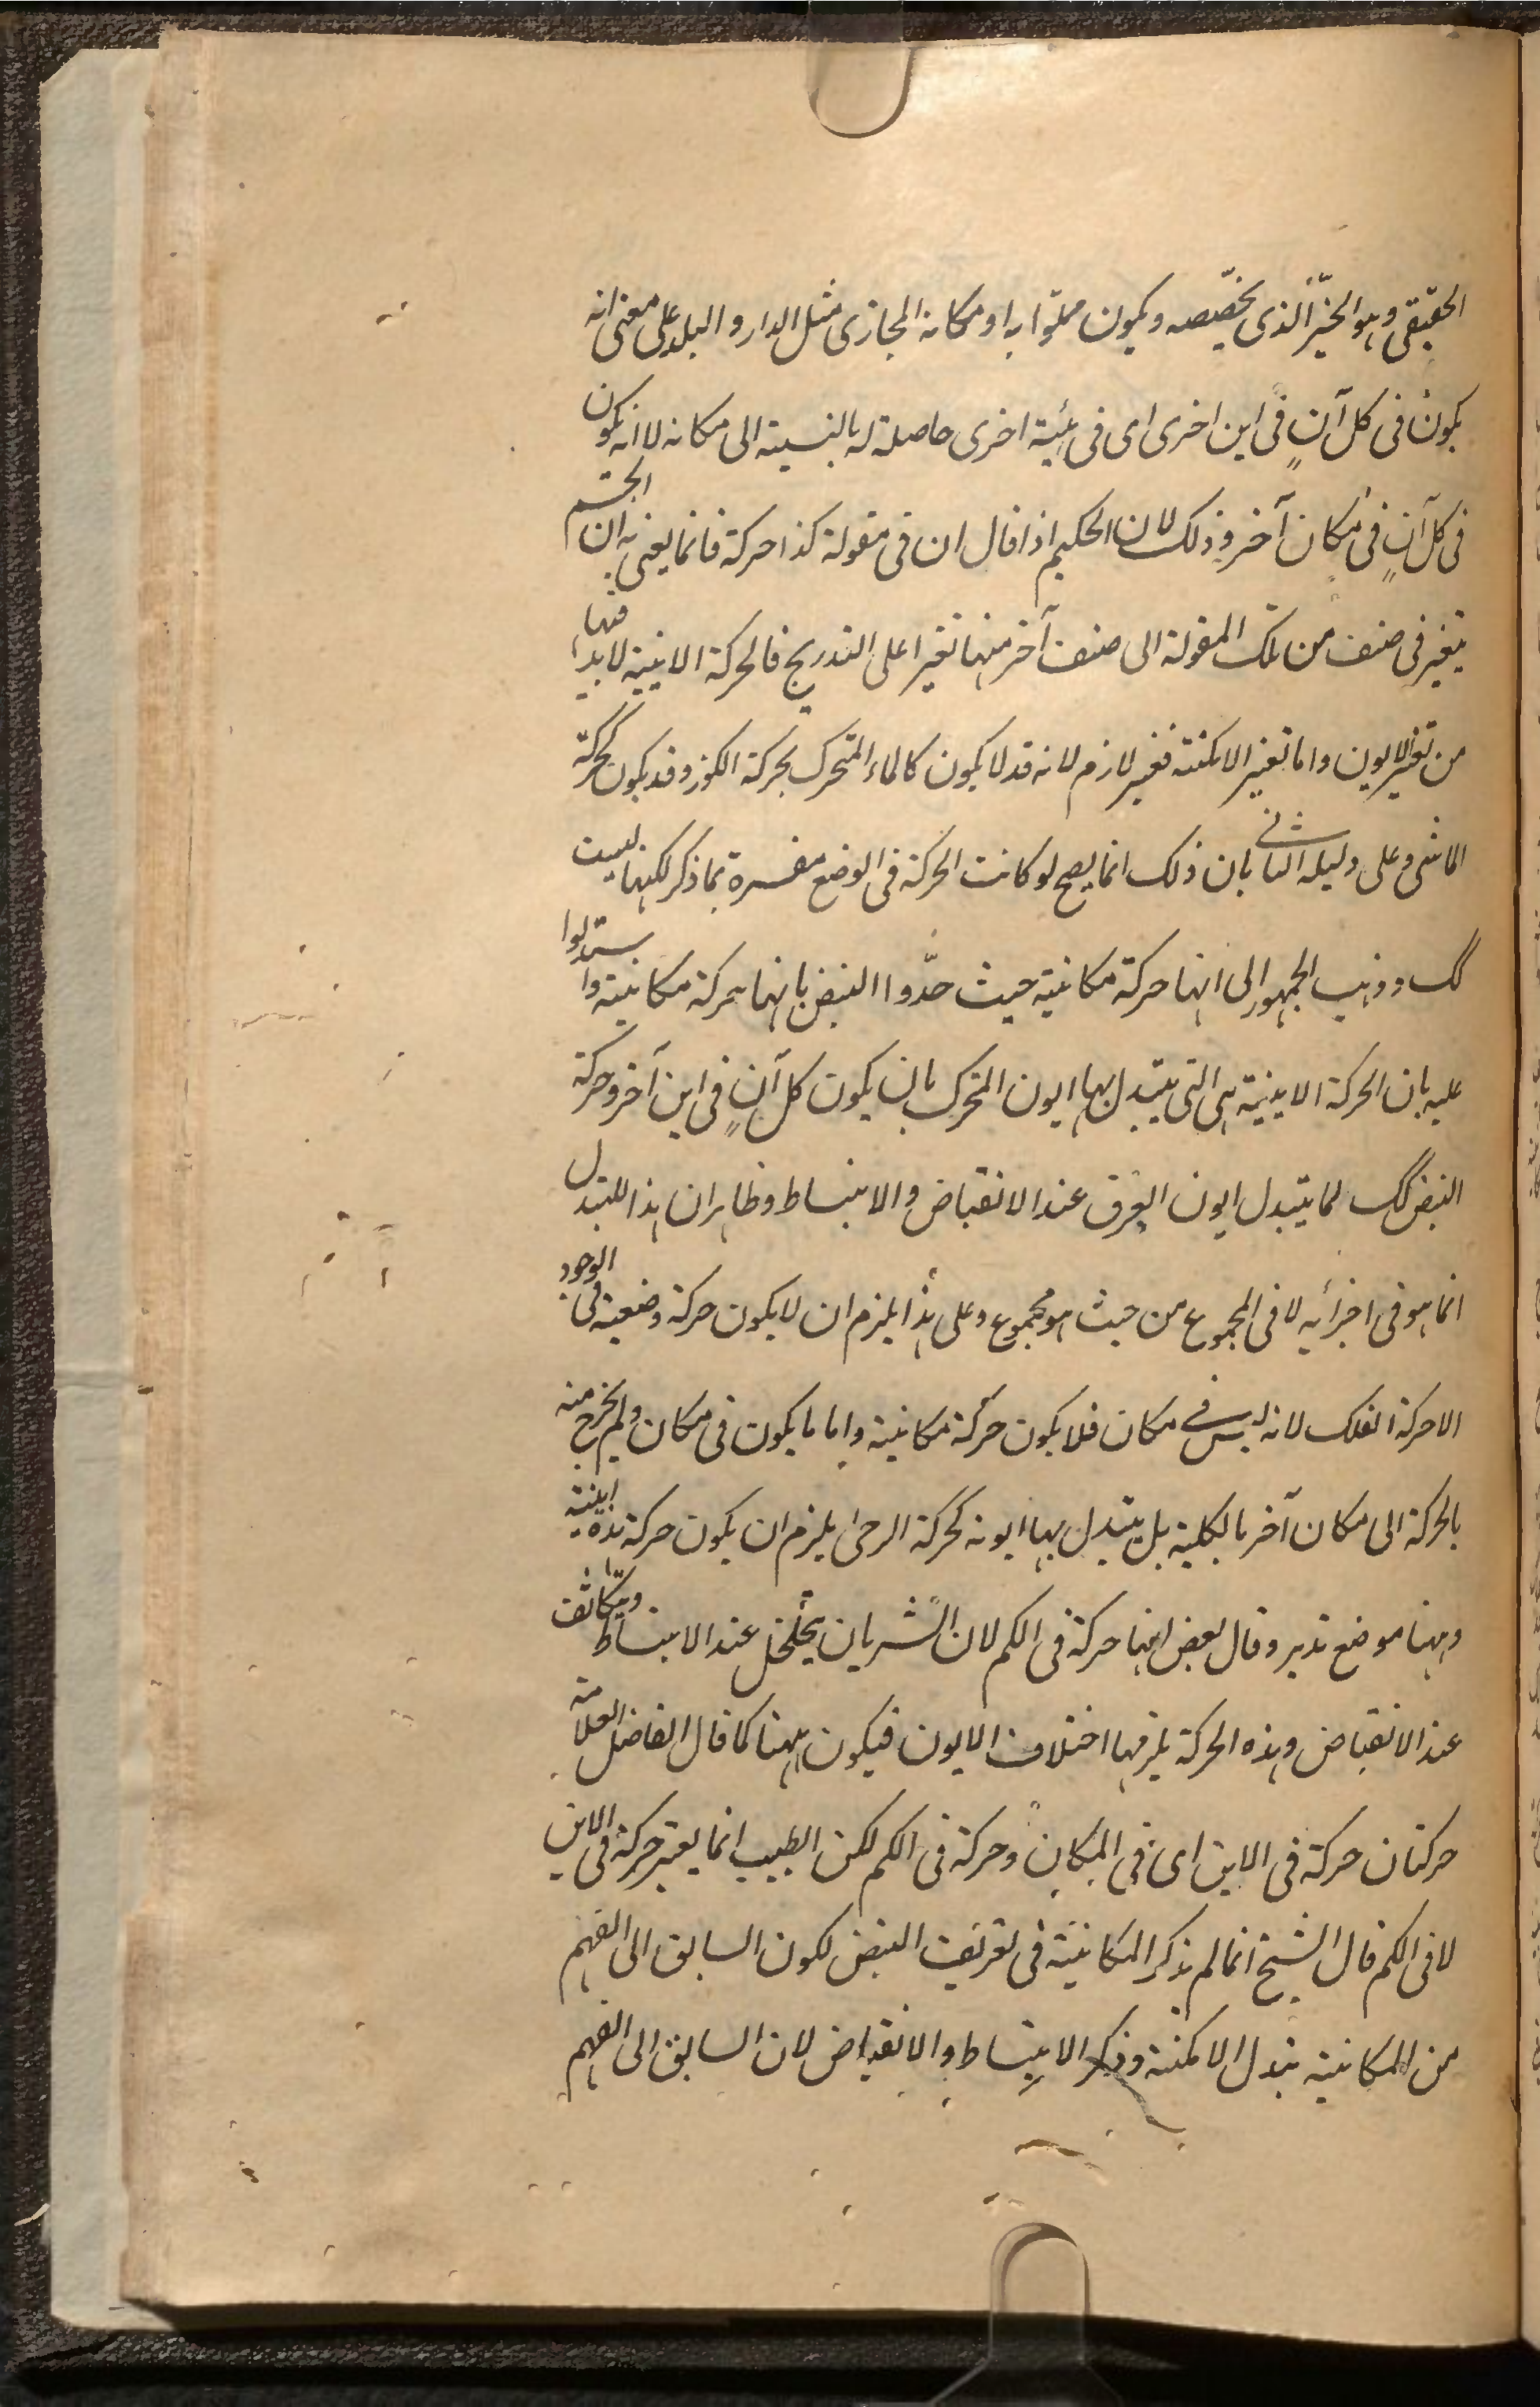 الحقيقى وهو الحيّز الذى يخصّصه ويكون مملوّا به او مكانه المجازى مثل الدار و البلد على معنى انه
يكون فى كل آنٍ فى اين اخرى اى فى هيئية اخرى حاصلة له بالنسبة الى مكانه لا انه يكون
فى كل آنٍ فى مكان آخر وذلك لان الحكيم اذا قال ان فى مقولة كذا حركة فانما يعنى به ان الجسم
يتغير فى صنف من تلك المقولة الى صنف آخر منها تغيرا على التدريج فالحركة الاينية لابد فيها
من تغير الايون واما تغير الامكنة فغير لازم لانه قد لا يكون كالماء المتحرك بحركة الكوز وقد يكون كحركة
الماشى وعلى دليله الثانى بان ذلك انما يصح لو كانت الحركة فى الوضع مفسرة بما ذكر لكنها ليست
كك وذهب الجمهور الى انها حركة مكانية حيث حدّوا النبض بانها حركة مكانية واستدلوا
عليه بان الحركة الاينية هى التى يتبدل بها ايون المتحرك بان يكون كل آنٍ فى اين آخر وحركة
النبض كك لما يتبدل ايون العرق عند الانقباض والانبساط وظاهر ان هذا التبدل
انما هو فى اجزائه لا فى المجموع من حيث هو مجموع وعلى هذا يلزم ان لا يكون حركة وضعية فى الوجود
الا حركة الفلك لانه ليس فى مكان فلا يكون حركة مكانية واما ما يكون فى مكان ولم يخرج منه
بالحركة الى مكان آخر بالكلية بل يتبدل بها ايونه كحركة الرحى يلزم ان يكون حركة هذه اينية
وههنا موضع تدبر وقال بعض انها حركة فى الكم لان الشريان يتخلخل عند الانبساط ويتكاثف
عند الانقباض وهذه الحركة يلزمها اختلاف الايون فيكون ههنا كما قال الفاضل العلامة
حركتان حركة فى الاين اى فى المكان وحركة فى الكم لكن الطبيب انما يعتبر حركة فى الاين
لا فى الكم قال الشيخ انما لم يذكر المكانية فى تعريف النبض لكون السابق الى الفهم
من المكانية تبدل الامكنة وذكر الانبساط والانقباض لان السابق الى الفهم